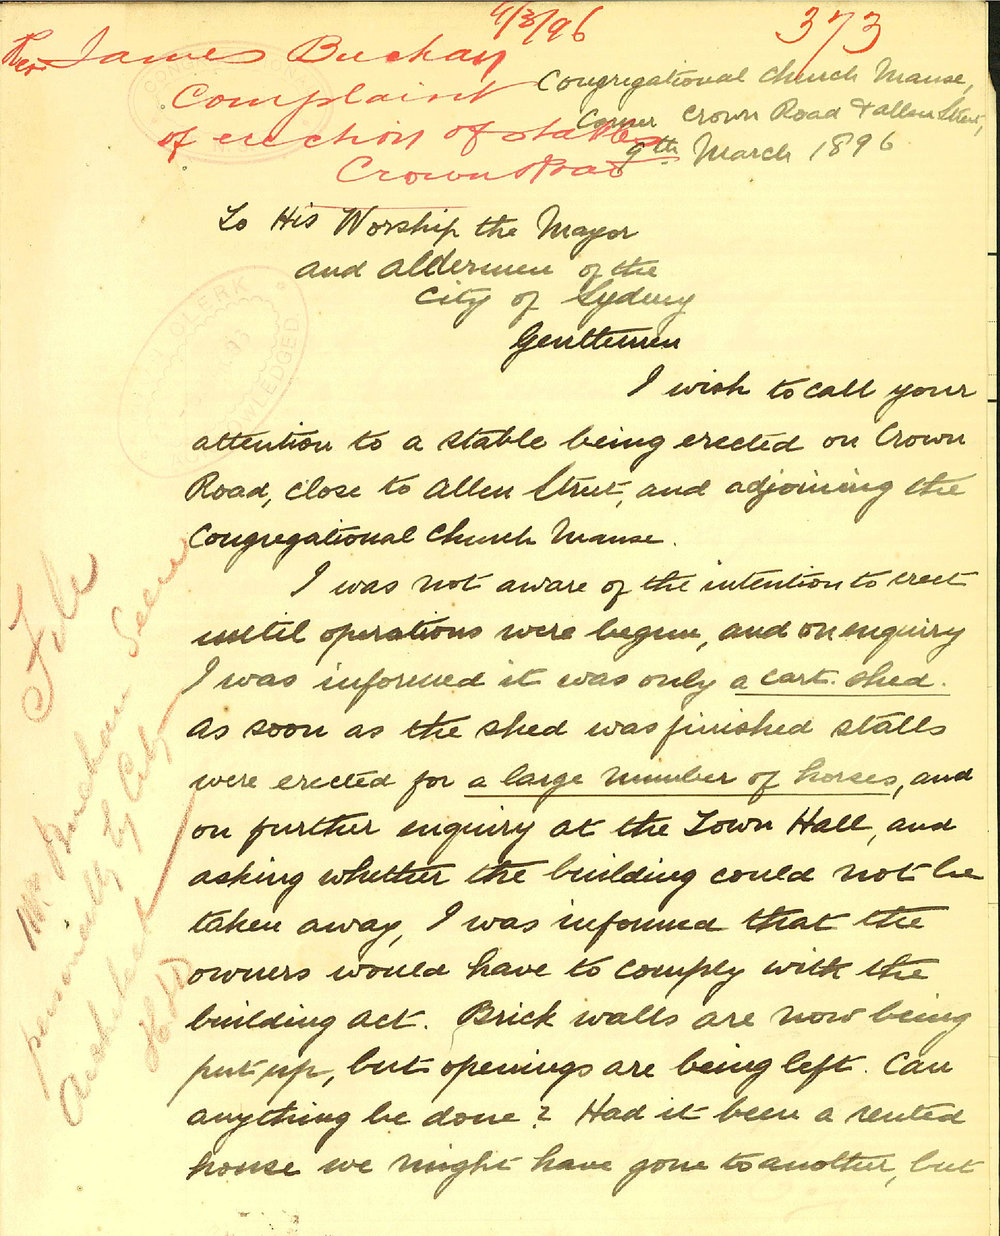 4/3/96
373
Rev James Buchan
Complaint
of erection of stables
Crown Road
Congregational Church Manse,
Corner Crown Road & Allen Street,
9th March 1896
To His Worship the Mayor
and Aldermen of the
City of Sydney
Gentlemen
CLERK
I wish to call your
attention to a stable being erected on Crown
Road, close to Allen Street, and adjoining the
Congregational Church Manse.
I was not aware of the intention to erect
until operations were begun, and on enquiry
I was informed it was only a cart shed.
As soon as the shed was finished stalls
were erected for a large number of horses, and
on further enquiry at the Town Hall, and
asking whether the building could not be
taken away, I was informed that the
owners would have to comply with the
building act. Brick walls are now being
put up, but openings are being left. Can
anything be done? Had it been a rented
house we might have gone to another, but
File
Mr. Buchan Seen
personally by City
Architect